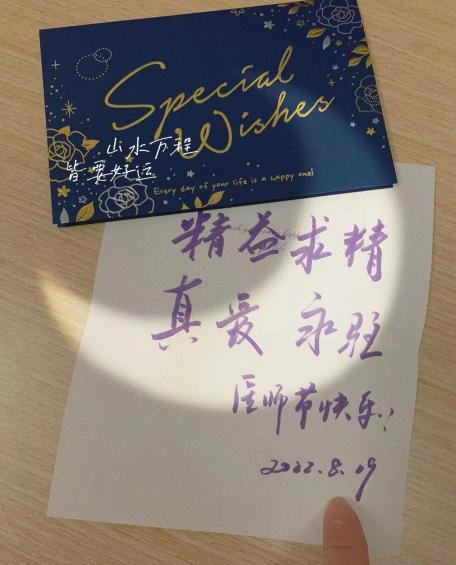 Special
Wishes
山水万程
皆要好运
Every day of your life is a happy one!
精益求精
真爱永驻
医师节快乐!
2022.8.19